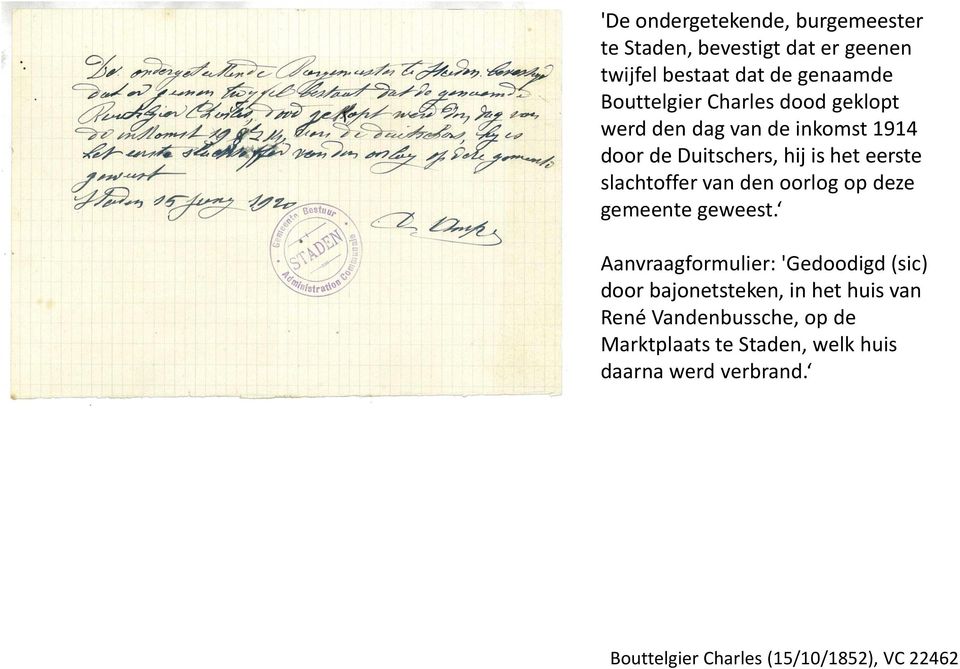 De ondergeteekende Burgemeester te Staden bevestigd
dat er geenen twyfel bestaat dat de genaamde
Charles, dood geklopt werd den dag van
de inkomst 19 14, van de duitschers, hy is
het eerste slachtoffer van den oorlog op deze gemeente
geweest
Staden 15 Juny 1920
Gemeente Bestuur
STADEN
Administration Communale
'De ondergetekende, burgemeester
te Staden, bevestigt dat er geenen
twijfel bestaat dat de genaamde
Bouttelgier Charles dood geklopt
werd den dag van de inkomst 1914
door de Duitschers, hij is het eerste
slachtoffer van den oorlog op deze
gemeente geweest.‘
Aanvraagformulier: 'Gedoodigd (sic)
door bajonetsteken, in het huis van
René Vandenbussche, op de
Marktplaats te Staden, welk huis
daarna werd verbrand.‘
Bouttelgier Charles (15/10/1852), VC 22462